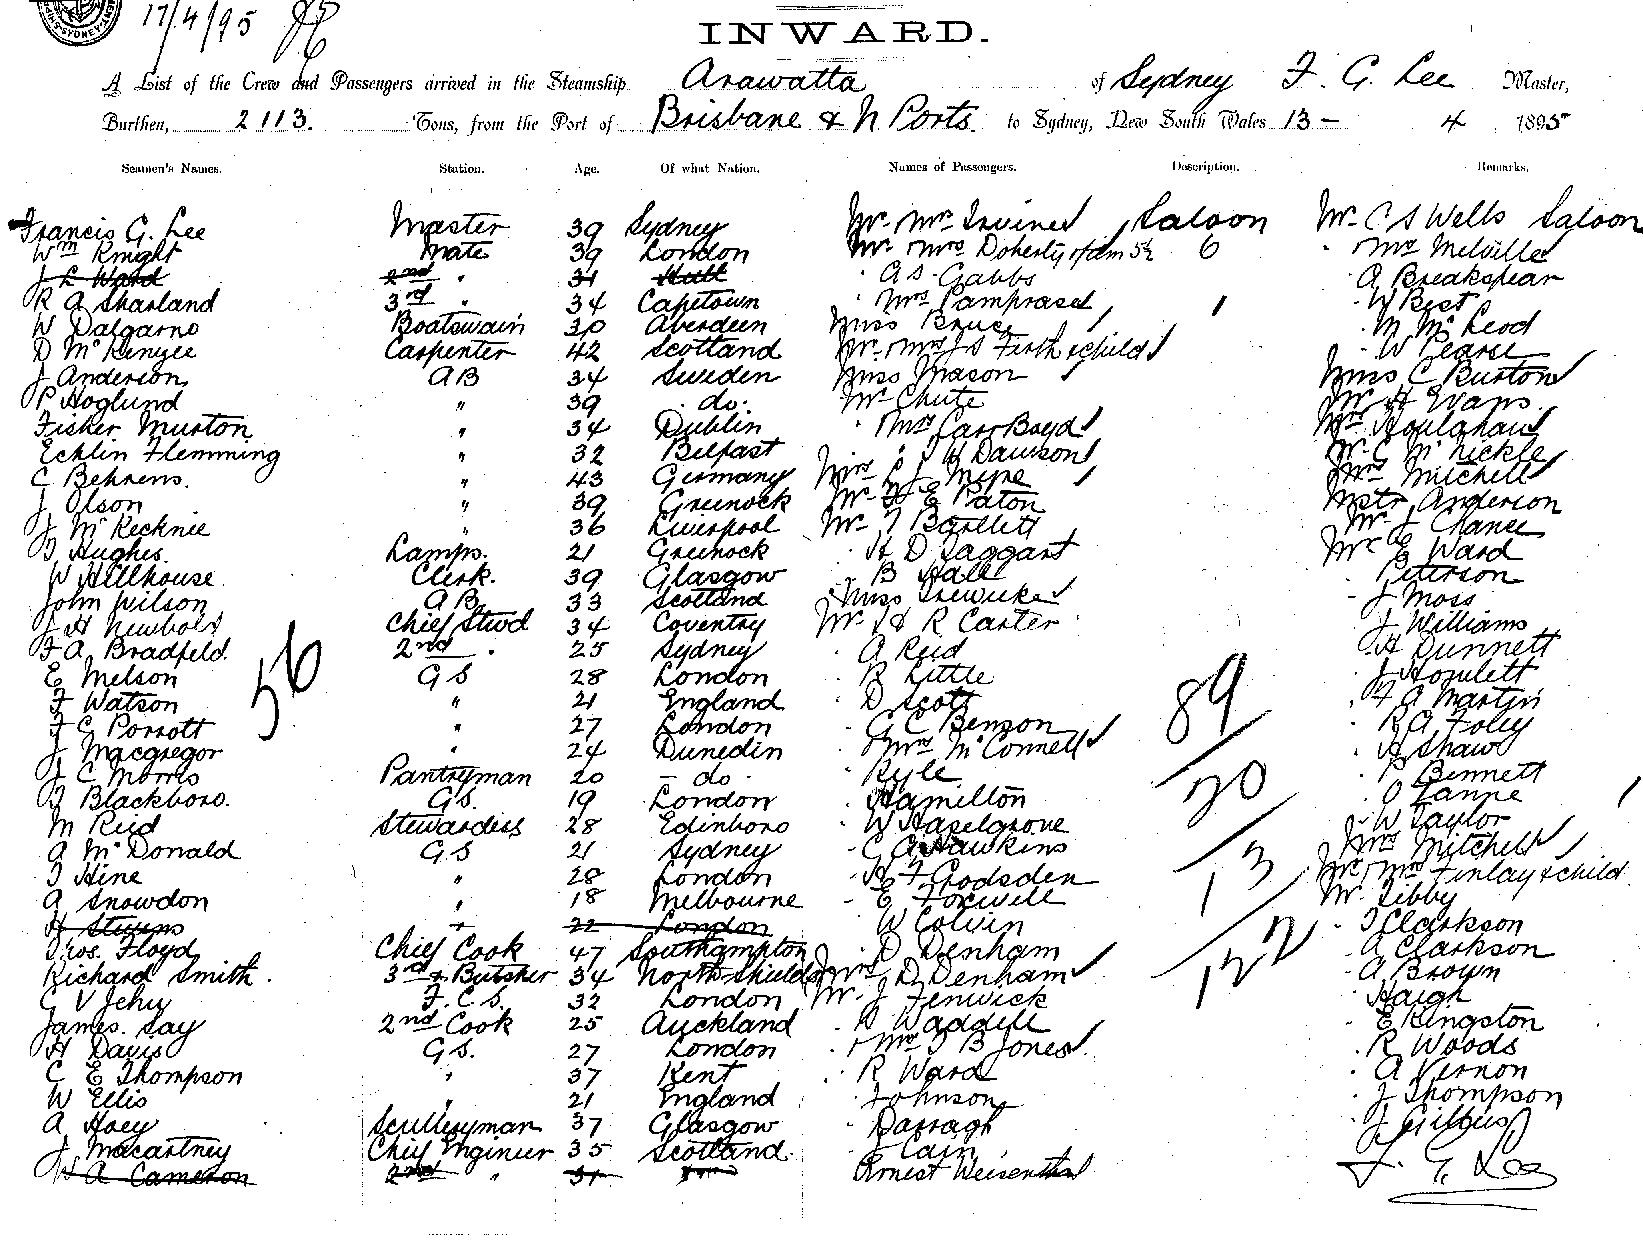 17/4/95
SYDNEY
INWARD.
A List of the Crew and Passengers arrived in the Steamship Arawatta of Sydney F. G. Lee Master,
Burthen, 2113. Tons, from the Port of Brisbane & N Ports. to Sydney, New South Wales 13 - 4 1895
Seamen's Names. Station. Age. Of what Nation. Names of Passengers. Description. Remarks.
Francis G. Lee Master 39 Sydney Mr. Mrs Irvine Saloon Mr. C S Wells Saloon
Wm Knight Mate 39 London Mr Mrs Doherty & fam 5½ 6 Mrs Melville
J L Ward 2nd " 31 Hull A S Gabbs A Breakspear
R A Sharland 3rd " 34 Capetown Mrs Pamprased W Best
W Dalgarno Boatswain 30 Aberdeen Miss Bruce M McLeod
D McKenzee Carpenter 42 Scotland Mr. Mrs J S Firth & child W Pearse
J Anderson AB 34 Sweden Miss Mason Miss C Burton
P Hoglund " 39 do. Mr Chute Mr H Evans
Fisher Murton " 34 Dublin Mrs Carr Boyd Mrs Houlahan
Ecklin Flemming " 32 Belfast " J W Dawson Mr. C McNickle
C Behrens " 43 Germany Mrs Myne Mrs Mitchell
J Olson " 39 Greenock Mr H E Paton Mstr Anderson
J McKecknie " 36 Liverpool Mr. T Bartlett Mr. J Chance
T Hughes Lamps. 21 Greenock H D Taggart Mr G Ward
W Hillhouse Clerk. 39 Glasgow B Hall Peterson
John Wilson AB 33 Scotland Miss Trewicke J Moss
J H Newbold Chief Stwd 34 Coventry Mr. R Carter J Williams
F A Bradfeld 2nd " 25 Sydney A Reid H Dunnett
56
E Melson G S 28 London R Little J Howlett
F Watson " 21 England D Scott F A Martin
89
F G Porrott " 27 London G C Benson R A Foley
J Macgregor " 24 Dunedin Mrs McConnell H Shaw
J C Morris Pantryman 20 - do - Kyle R Bennett
20
J Blackboro. G S. 19 London Hamilton O Zanne
M Reid Stewardess 28 Edinboro W Haselgrove W Taylor
A McDonald G S 21 Sydney C G Hawkins Mrs Mitchell
13
T Hine " 28 London H F Godsden Mr. Mrs Finlay & child
A Snowdon " 18 Melbourne E Foxwell Mr. Libby
H Stevens " 22 London W Colvin T Clarkson
Thos. Floyd Chief Cook 47 Southampton D Denham A Clarkson
122
Richard Smith 3rd & Butcher 34 North Shields Mrs D Denham A Brown
G V Jehu F. C. S. 32 London Mr. J Fenwick Haigh
James Say 2nd Cook 25 Auckland H Waddell E Kingston
H Davis G S. 27 London Mrs T B Jones R Woods
C E Thompson " 37 Kent R Ward A Vernon
W Ellis " 21 England Johnson J Thompson
A Hoey Sculleryman 37 Glasgow Darragh J Gibbus
J Macartney Chief Enginier 35 Scotland Cain
H A Cameron 2nd " 31 Ernest Weisenthal F. G. Lee